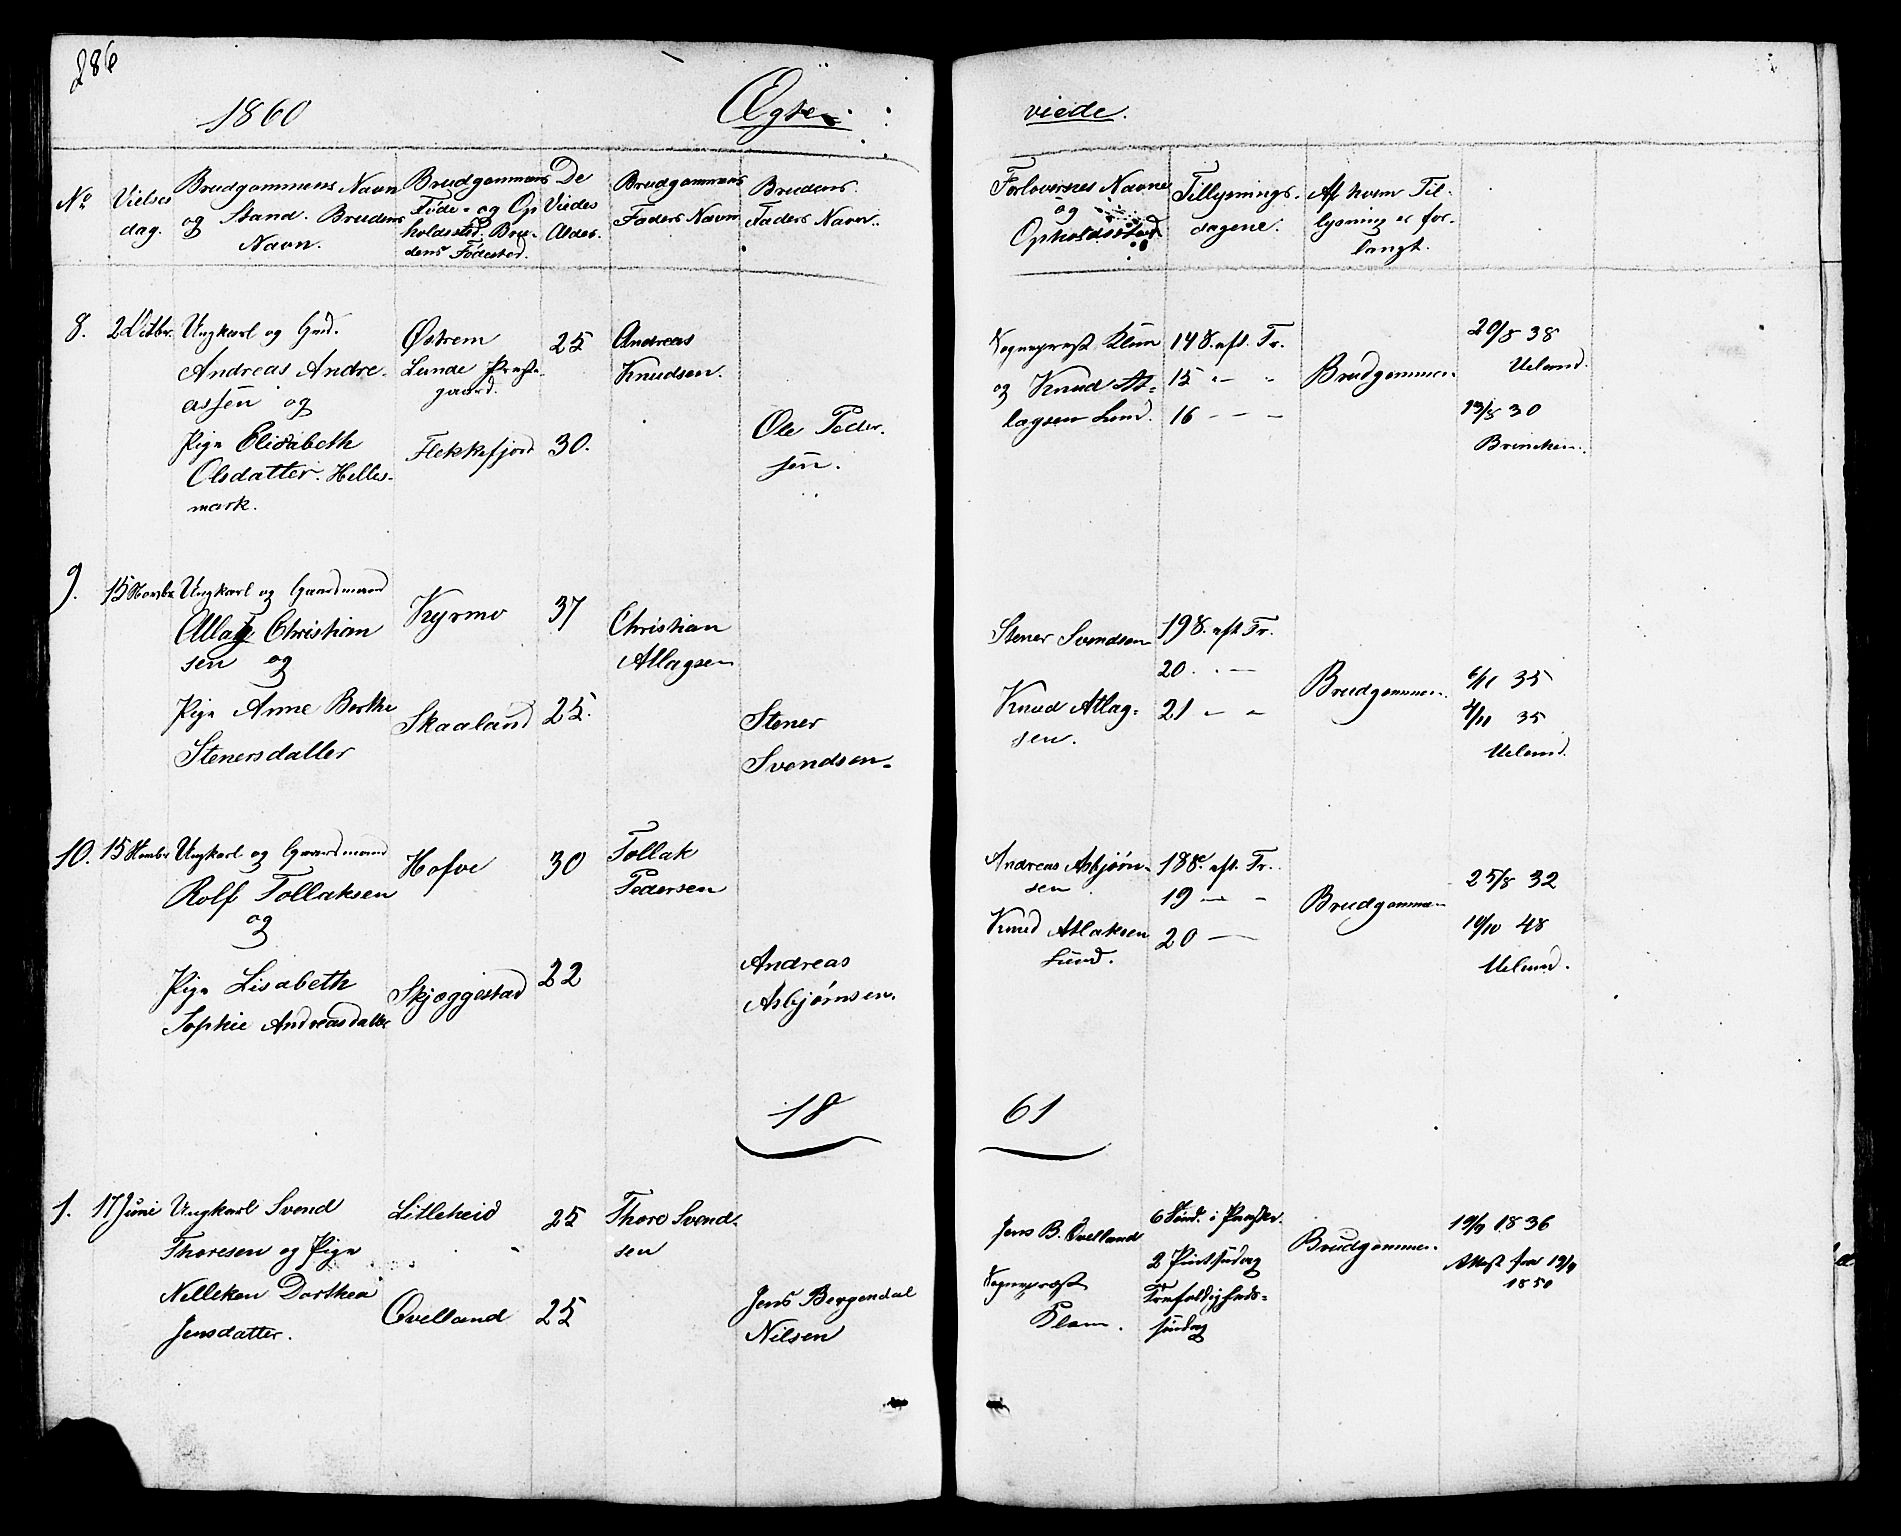 286
1860
Ægte-
viede.
No
Vielses
dag.
Brudgommens Navn
og Stand. Brudens
Navn.
Brudgommens
Føde- og Op
holdssted. Bru-
dens Fødested.
De
Viedes
Alder.
Brudgommens
Faders Navn
Brudens
Faders Navn.
Forlovernes Navne
og
Opholdssted
Tillysnings-
dagene.
Af hvem Til-
lysning er for-
langt.
8.
Ungkarl og Gmd.
Andreas Andre-
assen og
Pige Elisabeth
Olsdatter. Helles-
mark.
Østrem
Lunde Præste-
gaard.
Flekkefjord
25
30.
Andreas
Knudsen.
Ole Peder-
sen.
Sognepræst
og Knud At-
lagsen Lund.
14 S. eft. Tr.
15 " "
16 - - -
Brudgommen
20/8 38
Ueland.
30
9.
15 Novbr.
Ungkarl og Gaardmand
Atlag Christian
sen og
Pige Anne Berthe
Stenersdatter
Kyrmo
Skaaland
37
25.
Christian
Atlagsen
Stener
Svendsen.
Stener Svendsen
Knud Atlag-
sen.
19 S. eft Tr.
20. " -
21 - "
Brudgommen.
6/11 35
35
Ueland.
10.
15 Novbr
Ungkarl og Gaardmand
Rolf Tollaksen
og
Pige Lisabeth
Sophie Andreasdatter
Hofve
Skjæggestad
30
22
Tollak
Pedersen
Andreas
Asbjørnsen.
Andreas Asbjørn-
sen
Knud Atlaksen
Lund.
18 S. eft. Tr.
19 - -
20 -
Brudgommen
25/8 32
48
Ueland.
18
61
1.
17 Juni
Ungkarl Svend
Thoresen og Pige
Nilleken Dorthea
Jensdatter.
Litleheid
Qvelland
25
25
Thore Svend-
sen
Jens Bergendal
Nilsen
Jens B. Qvelland
Sognepræst
6 Sønd. i Paaske.
2 Pintsedag
Trefoldigheds-
søndag
Brudgommen.
1836
Attest fra
1850